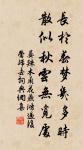 長於春夢幾多時
散似秋雲無覓處
晏殊木蘭花燕鴻過後
鶯歸去詞典網集